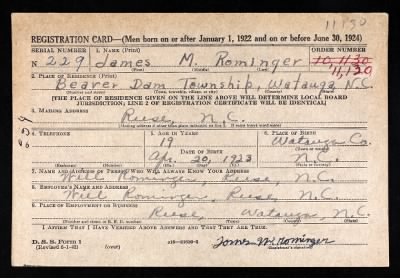 11130
REGISTRATION CARD—(Men born on or after January 1, 1922 and on or before June 30, 1924)
SERIAL NUMBER 1. NAME (Print) ORDER NUMBER
N 229 James M. Rominger 10,1130
(First) (Middle) (Last) 11,130
2. PLACE OF RESIDENCE (Print)
Beaver Dam Township, Watauga N.C.
(Number and street) (Town, township, village, or city) (County) (State)
[THE PLACE OF RESIDENCE GIVEN ON THE LINE ABOVE WILL DETERMINE LOCAL BOARD
JURISDICTION; LINE 2 OF REGISTRATION CERTIFICATE WILL BE IDENTICAL]
3. MAILING ADDRESS
Reese, N.C.
4. TELEPHONE 5. AGE IN YEARS 6. PLACE OF BIRTH
19 Watauga Co.
DATE OF BIRTH
Apr. 20, 1923 N.C.
(Exchange) (Number) (Mo.) (Day) (Yr.) (State or country)
7. NAME AND ADDRESS OF PERSON WHO WILL ALWAYS KNOW YOUR ADDRESS
Will Rominger, Reese, N.C.
8. EMPLOYER'S NAME AND ADDRESS
Will Rominger, Reese, N.C.
9. PLACE OF EMPLOYMENT OR BUSINESS
Reese, Watauga, N.C.
(Number and street or R. F. D. number) (Town) (County) (State)
I AFFIRM THAT I HAVE VERIFIED ABOVE ANSWERS AND THAT THEY ARE TRUE.
D. S. S. FORM 1
(Revised 6-1-42) James M. Rominger
(Registrant's signature)